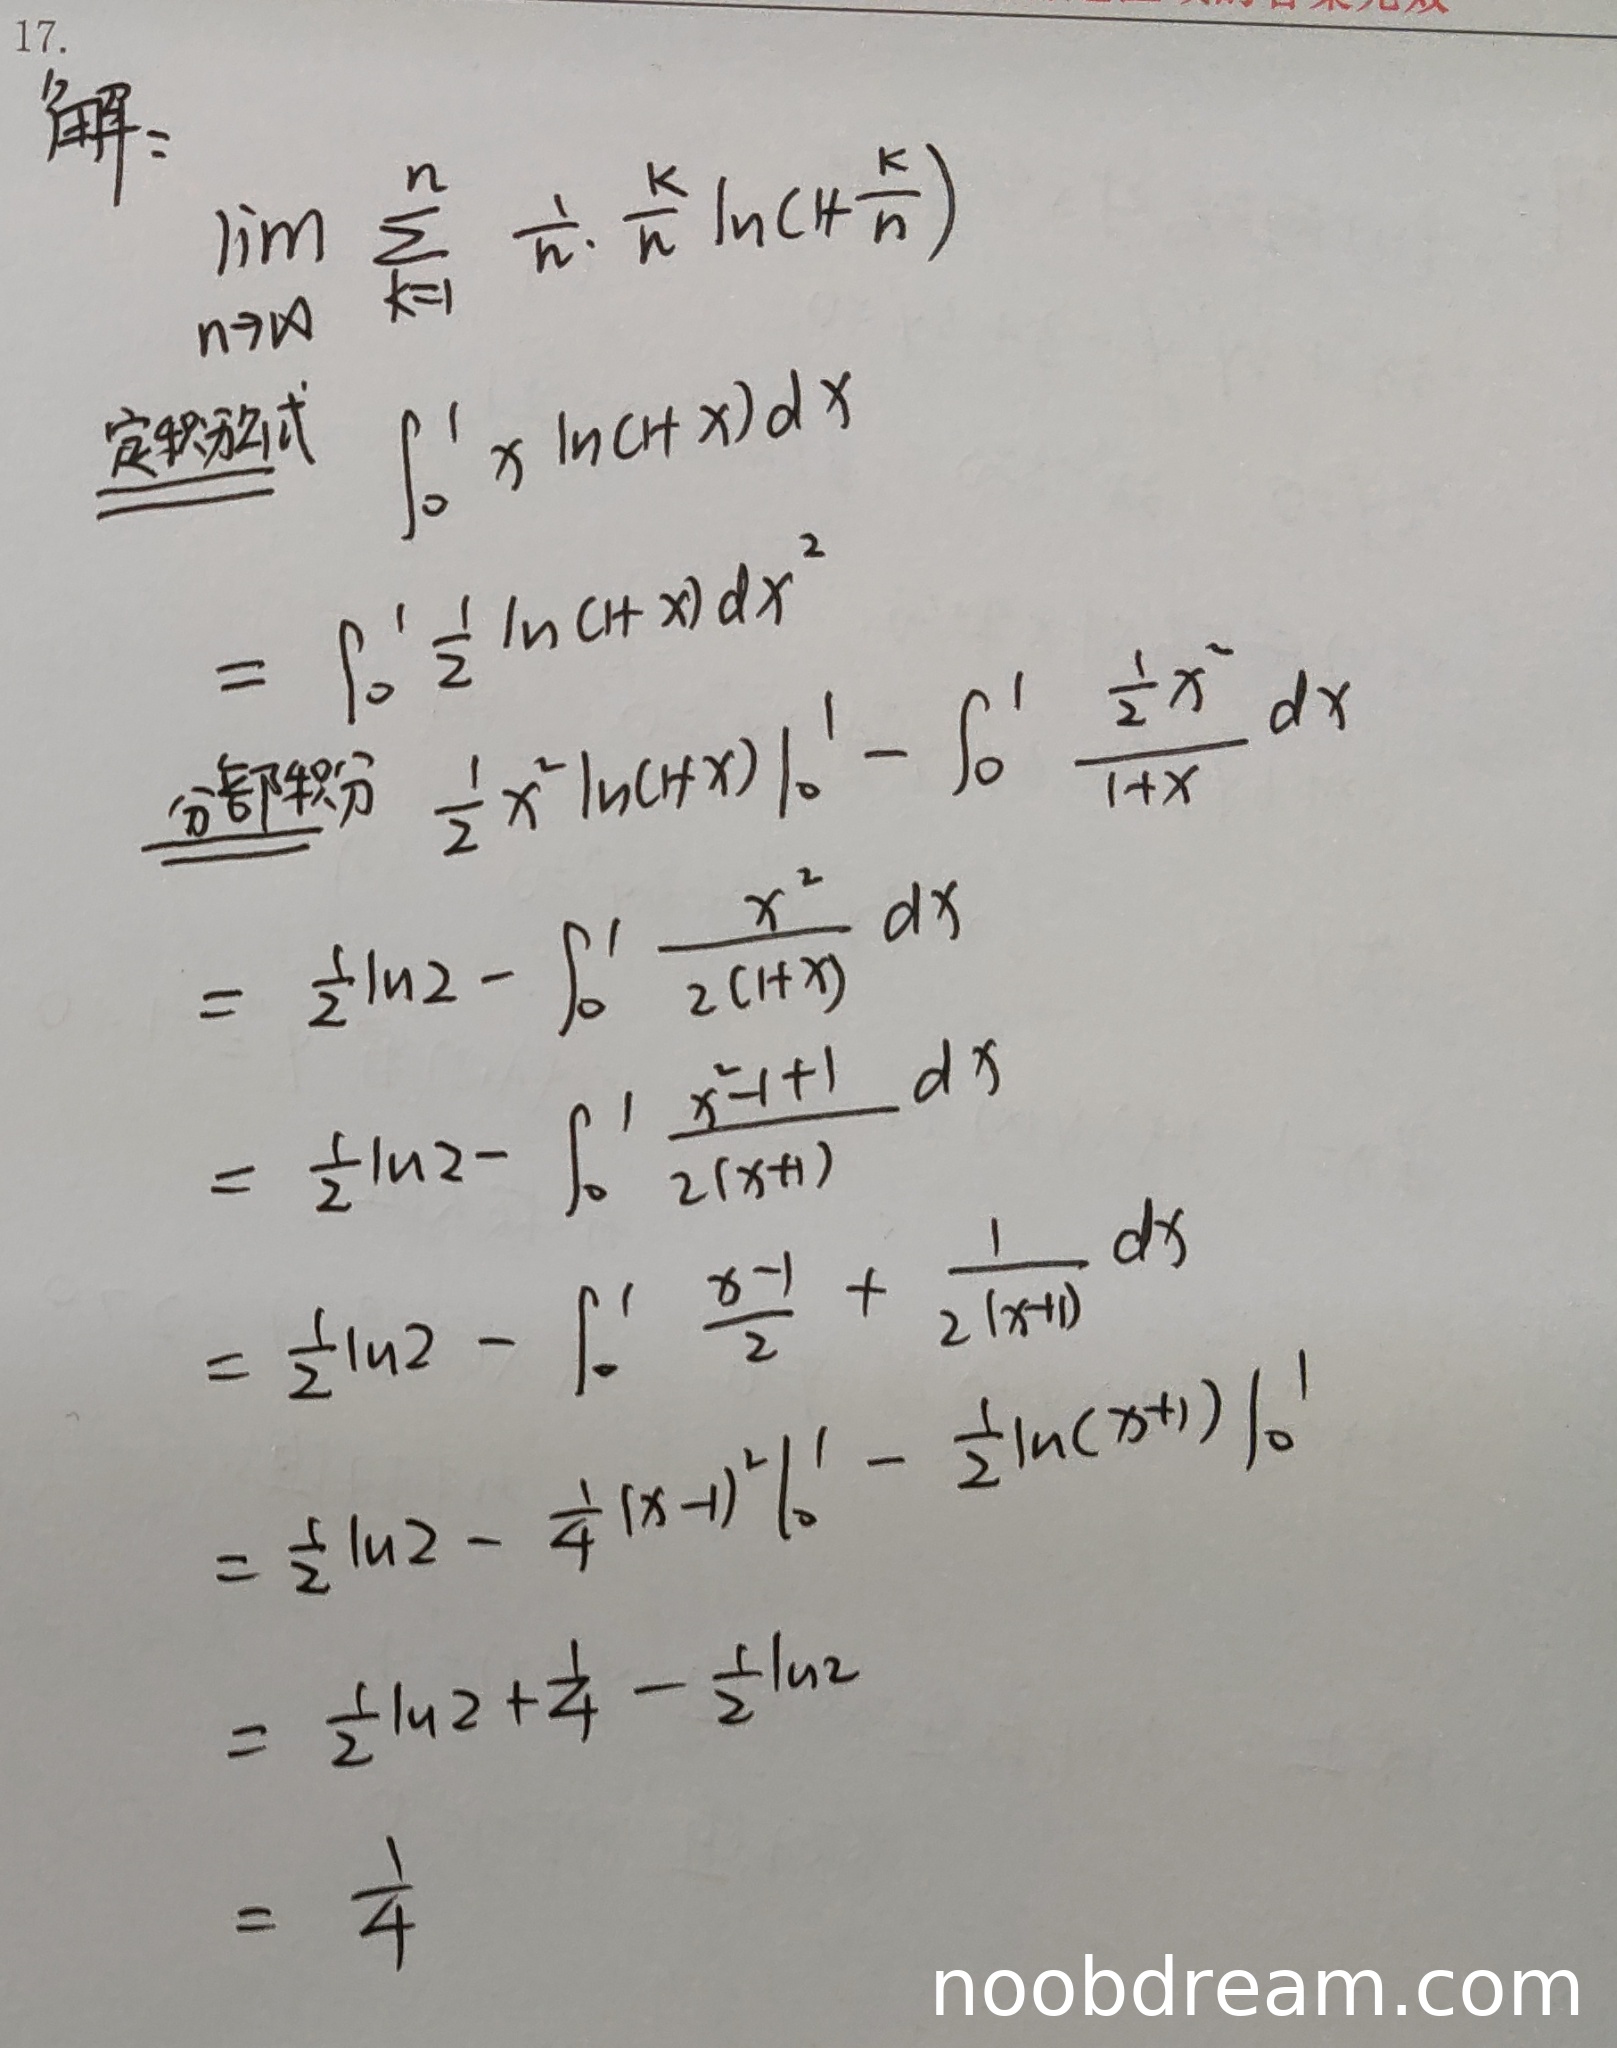 17.
解:
lim n→∞ ∑ k=1 n 1/n · k/n ln(1+k/n)
定积分定义式 ∫₀¹ x ln(1+x)dx
= ∫₀¹ 1/2 ln(1+x)dx²
分部积分 1/2 x² ln(1+x)|₀¹ - ∫₀¹ (1/2 x²)/(1+x) dx
= 1/2 ln2 - ∫₀¹ x²/(2(1+x)) dx
= 1/2 ln2 - ∫₀¹ (x²-1+1)/(2(x+1)) dx
= 1/2 ln2 - ∫₀¹ (x-1)/2 + 1/(2(x+1)) dx
= 1/2 ln2 - 1/4 (x-1)²|₀¹ - 1/2 ln(x+1)|₀¹
= 1/2 ln2 + 1/4 - 1/2 ln2
= 1/4
noobdream.com